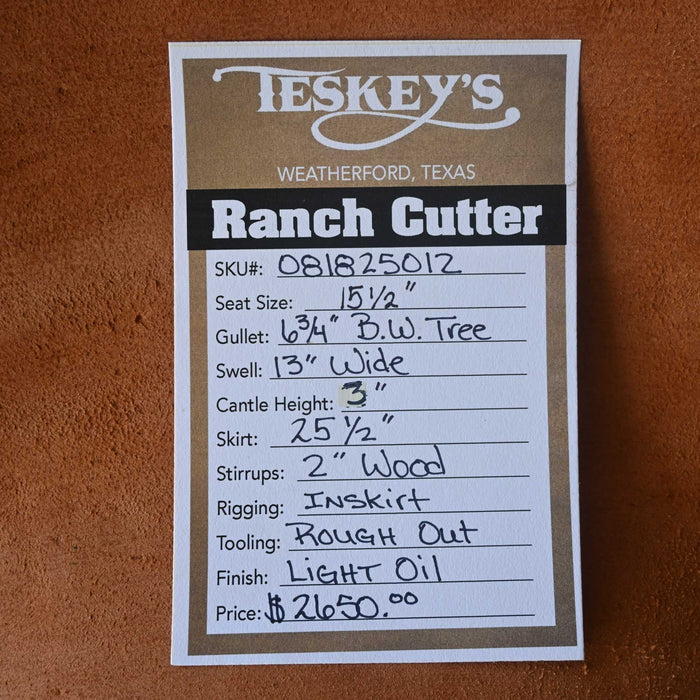 TESKEY'S
WEATHERFORD, TEXAS
Ranch Cutter
SKU#: 081825012
Seat Size: 15 1/2"
Gullet: 6 3/4" B.W. Tree
Swell: 13" Wide
Cantle Height: 3"
Skirt: 25 1/2"
Stirrups: 2" Wood
Rigging: INSkirt
Tooling: ROUGH Out
Finish: LIGHT Oil
Price: $2650.00